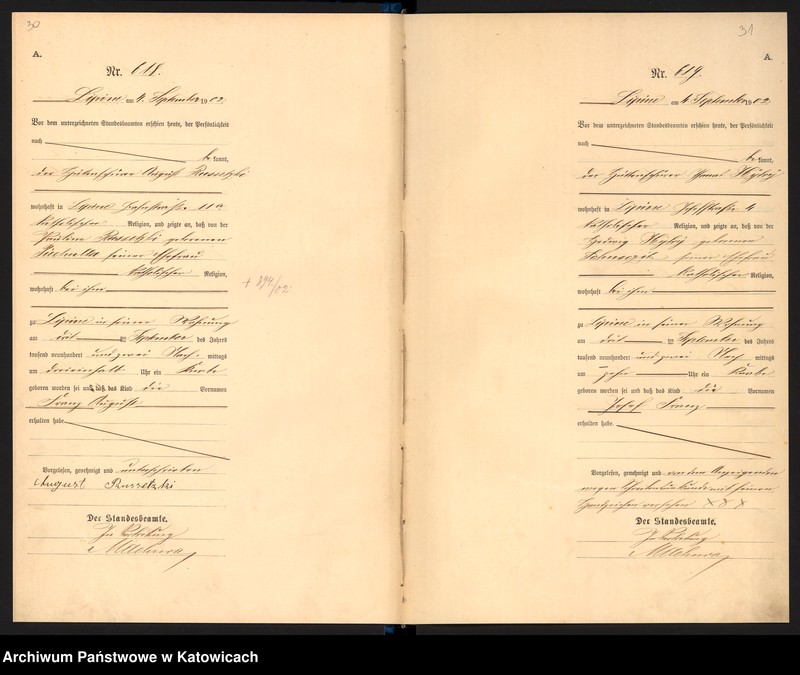 30
A.
Nr. 618.
Lipine am 4. September 1902.
Vor dem unterzeichneten Standesbeamten erschien heute, der Persönlichkeit
nach
be kannt,
der August Russetzki
wohnhaft in Lipine 11a
katholischer Religion, und zeigte an, daß von der
Pauline Russetzki geborenen
seiner Ehefrau
katholischer Religion,
wohnhaft bei ihm
zu Lipine in seiner Wohnung
am September des Jahres
tausend neunhundert und zwei Nach mittags
um Uhr ein Knabe
geboren worden sei und daß das Kind die Vornamen
Franz August
erhalten habe.
Vorgelesen, genehmigt und unterschrieben
August Russetzki
Der Standesbeamte.
In Vertretung
+ 894/02
31
A.
Nr. 619.
Lipine am 4. September 1902
Vor dem unterzeichneten Standesbeamten erschien heute, der Persönlichkeit
nach
be kannt,
der
wohnhaft in Lipine 4
katholischer Religion, und zeigte an, daß von der
Hedwig geborenen
seiner Ehefrau
katholischer Religion,
wohnhaft bei ihm
zu Lipine in seiner Wohnung
am September des Jahres
tausend neunhundert und zwei Nach mittags
um zehn Uhr ein Knabe
geboren worden sei und daß das Kind die Vornamen
Josef Franz
erhalten habe.
Vorgelesen, genehmigt und von dem Anzeigenden
wegen Schreibunkunde mit seinem
Handzeichen versehen X X X
Der Standesbeamte.
In Vertretung
Archiwum Państwowe w Katowicach